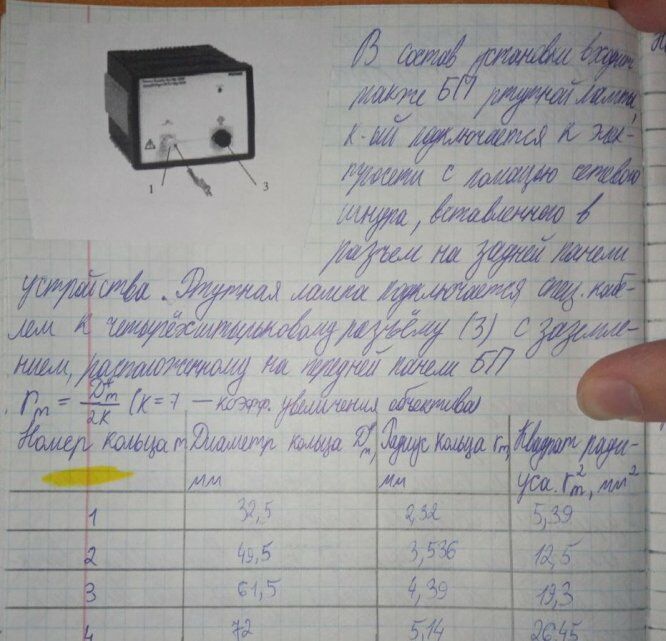 В состав установки входит
также БП ртутной лампы,
к-ый подключается к элек-
тросети с помощью сетевого
шнура, вставленного в
разъем на задней панели
1
3
устройства. Ртутная лампа подключается спец. кабе-
лем к четырёхштырьковому разъёму (3) с заземле-
нием, расположенному на передней панели БП
r_m = D*_m / 2K (K = 7 — коэфф. увеличения объектива)
Номер кольца m Диаметр кольца D*_m, Радиус кольца r_m, Квадрат ради-
мм мм уса r_m^2, мм^2
1 32,5 2,32 5,39
2 49,5 3,536 12,5
3 61,5 4,39 19,3
4 72 5,14 26,45